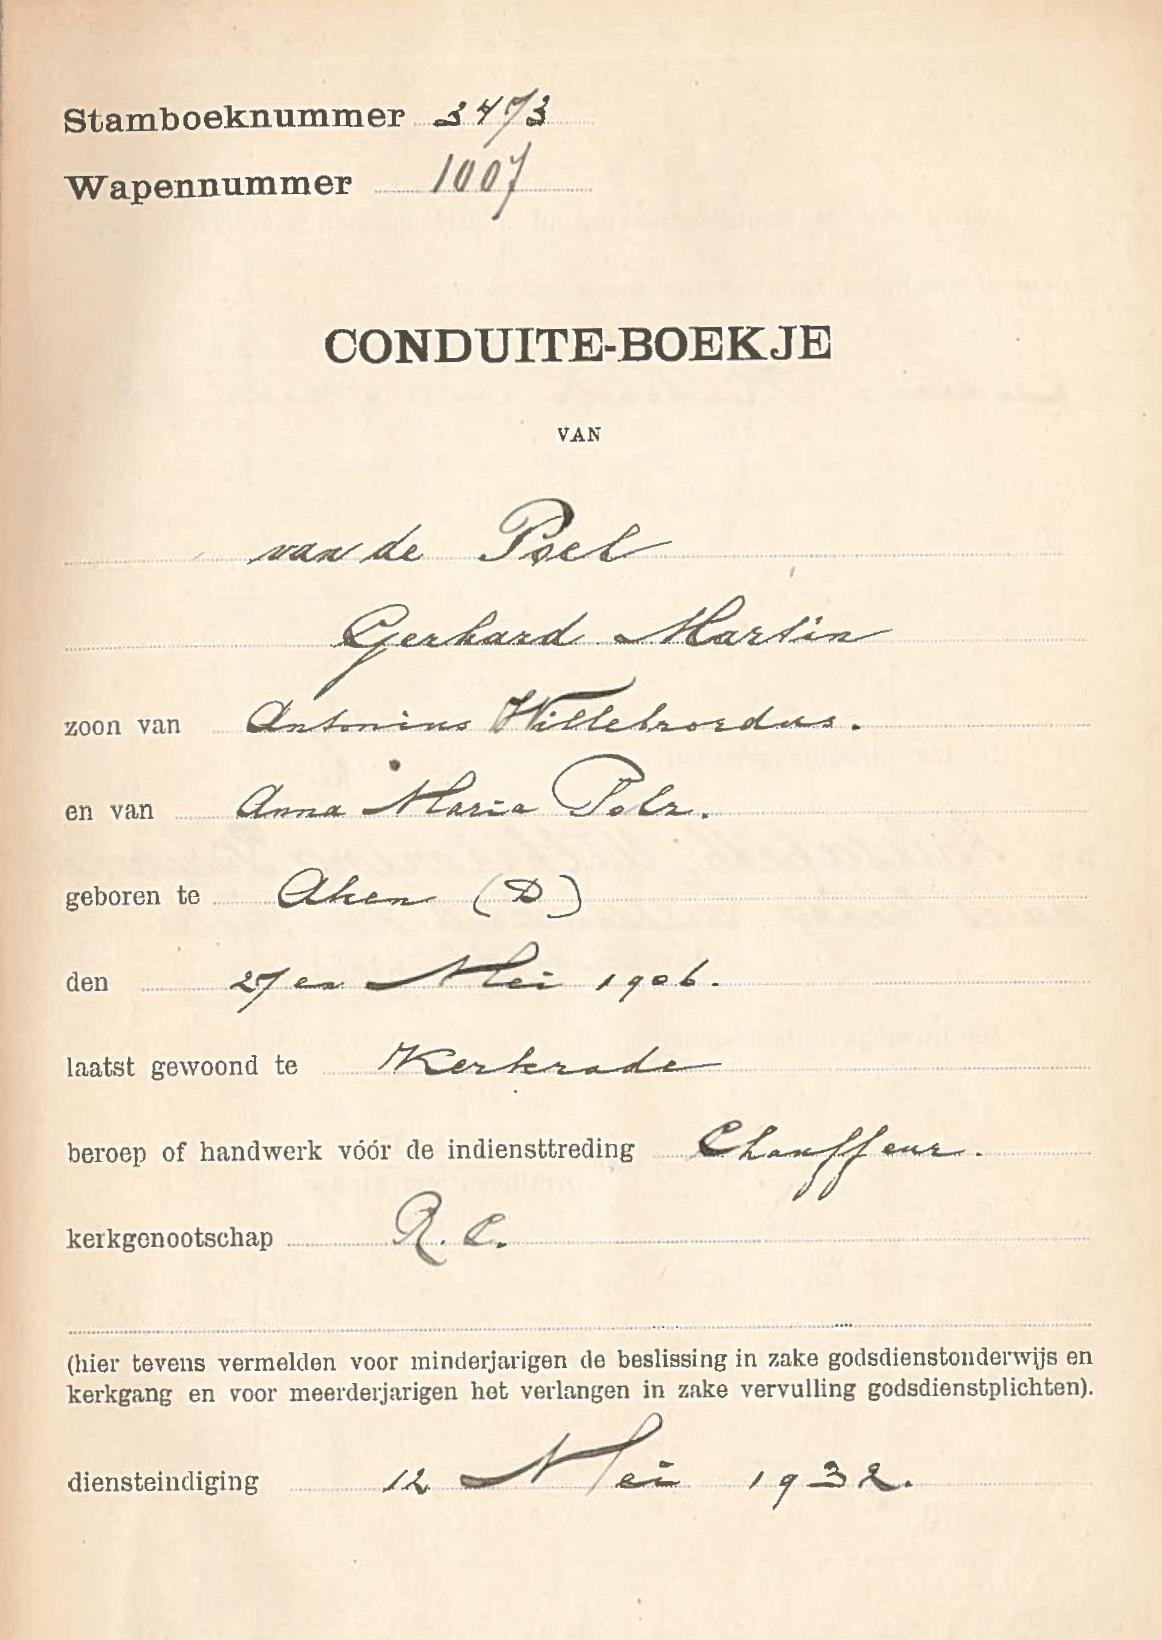 Stamboeknummer 3473
Wapennummer 1007
CONDUITE-BOEKJE
VAN
van de Poel
Gerhard Martin
zoon van Antonius Willebrordus.
en van Anna Maria Polz.
geboren te Aken (D)
den 27en Mei 1906.
laatst gewoond te Kerkrade
beroep of handwerk vóór de indiensttreding Chauffeur.
kerkgenootschap R. C.
(hier tevens vermelden voor minderjarigen de beslissing in zake godsdienstonderwijs en
kerkgang en voor meerderjarigen het verlangen in zake vervulling godsdienstplichten).
diensteindiging 12 Mei 1932.